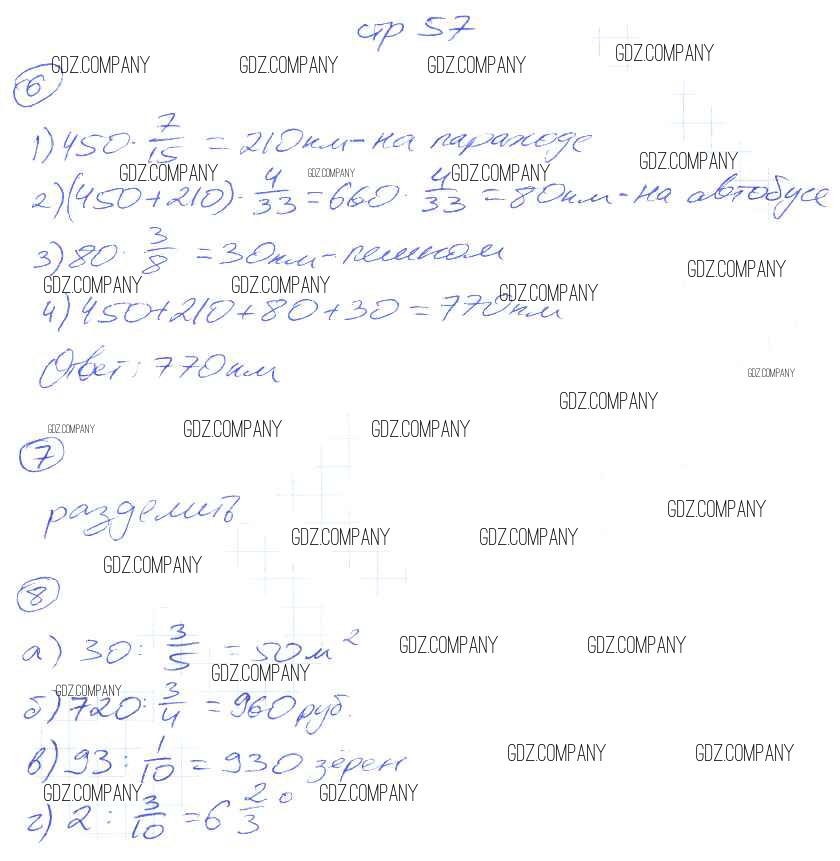 стр 57
GDZ.COMPANY GDZ.COMPANY GDZ.COMPANY GDZ.COMPANY
6
1) 450 · 7/15 = 210 км - на параходе
GDZ.COMPANY GDZ.COMPANY GDZ.COMPANY GDZ.COMPANY
2) (450+210) · 4/33 = 660 · 4/33 = 80 км - на автобусе
3) 80 · 3/8 = 30 км - пешком
GDZ.COMPANY GDZ.COMPANY GDZ.COMPANY GDZ.COMPANY
4) 450+210+80+30 = 770 км
Ответ: 770 км
GDZ.COMPANY
GDZ.COMPANY
GDZ.COMPANY GDZ.COMPANY GDZ.COMPANY
7
разделить
GDZ.COMPANY
GDZ.COMPANY GDZ.COMPANY
GDZ.COMPANY
8
а) 30 : 3/5 = 50 м²
GDZ.COMPANY GDZ.COMPANY
GDZ.COMPANY
GDZ.COMPANY
б) 720 : 3/4 = 960 руб.
в) 93 : 1/10 = 930 зёрен
GDZ.COMPANY GDZ.COMPANY
GDZ.COMPANY GDZ.COMPANY
г) 2 : 3/10 = 6 2/3 °